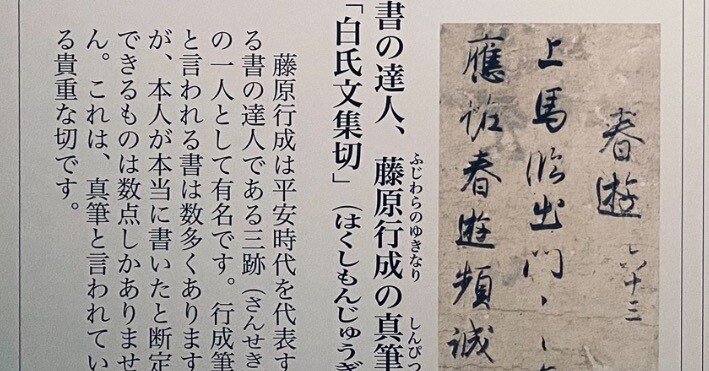 春遊
上馬臨出門
應訝春遊頻誠
ふじわらのゆきなり しんぴつ
書の達人、藤原行成の真筆
「白氏文集切」（はくしもんじゅうぎ
藤原行成は平安時代を代表す
る書の達人である三跡（さんせき
の一人として有名です。行成筆
と言われる書は数多くあります
が、本人が本当に書いたと断定
できるものは数点しかありませ
ん。これは、真筆と言われてい
る貴重な切です。